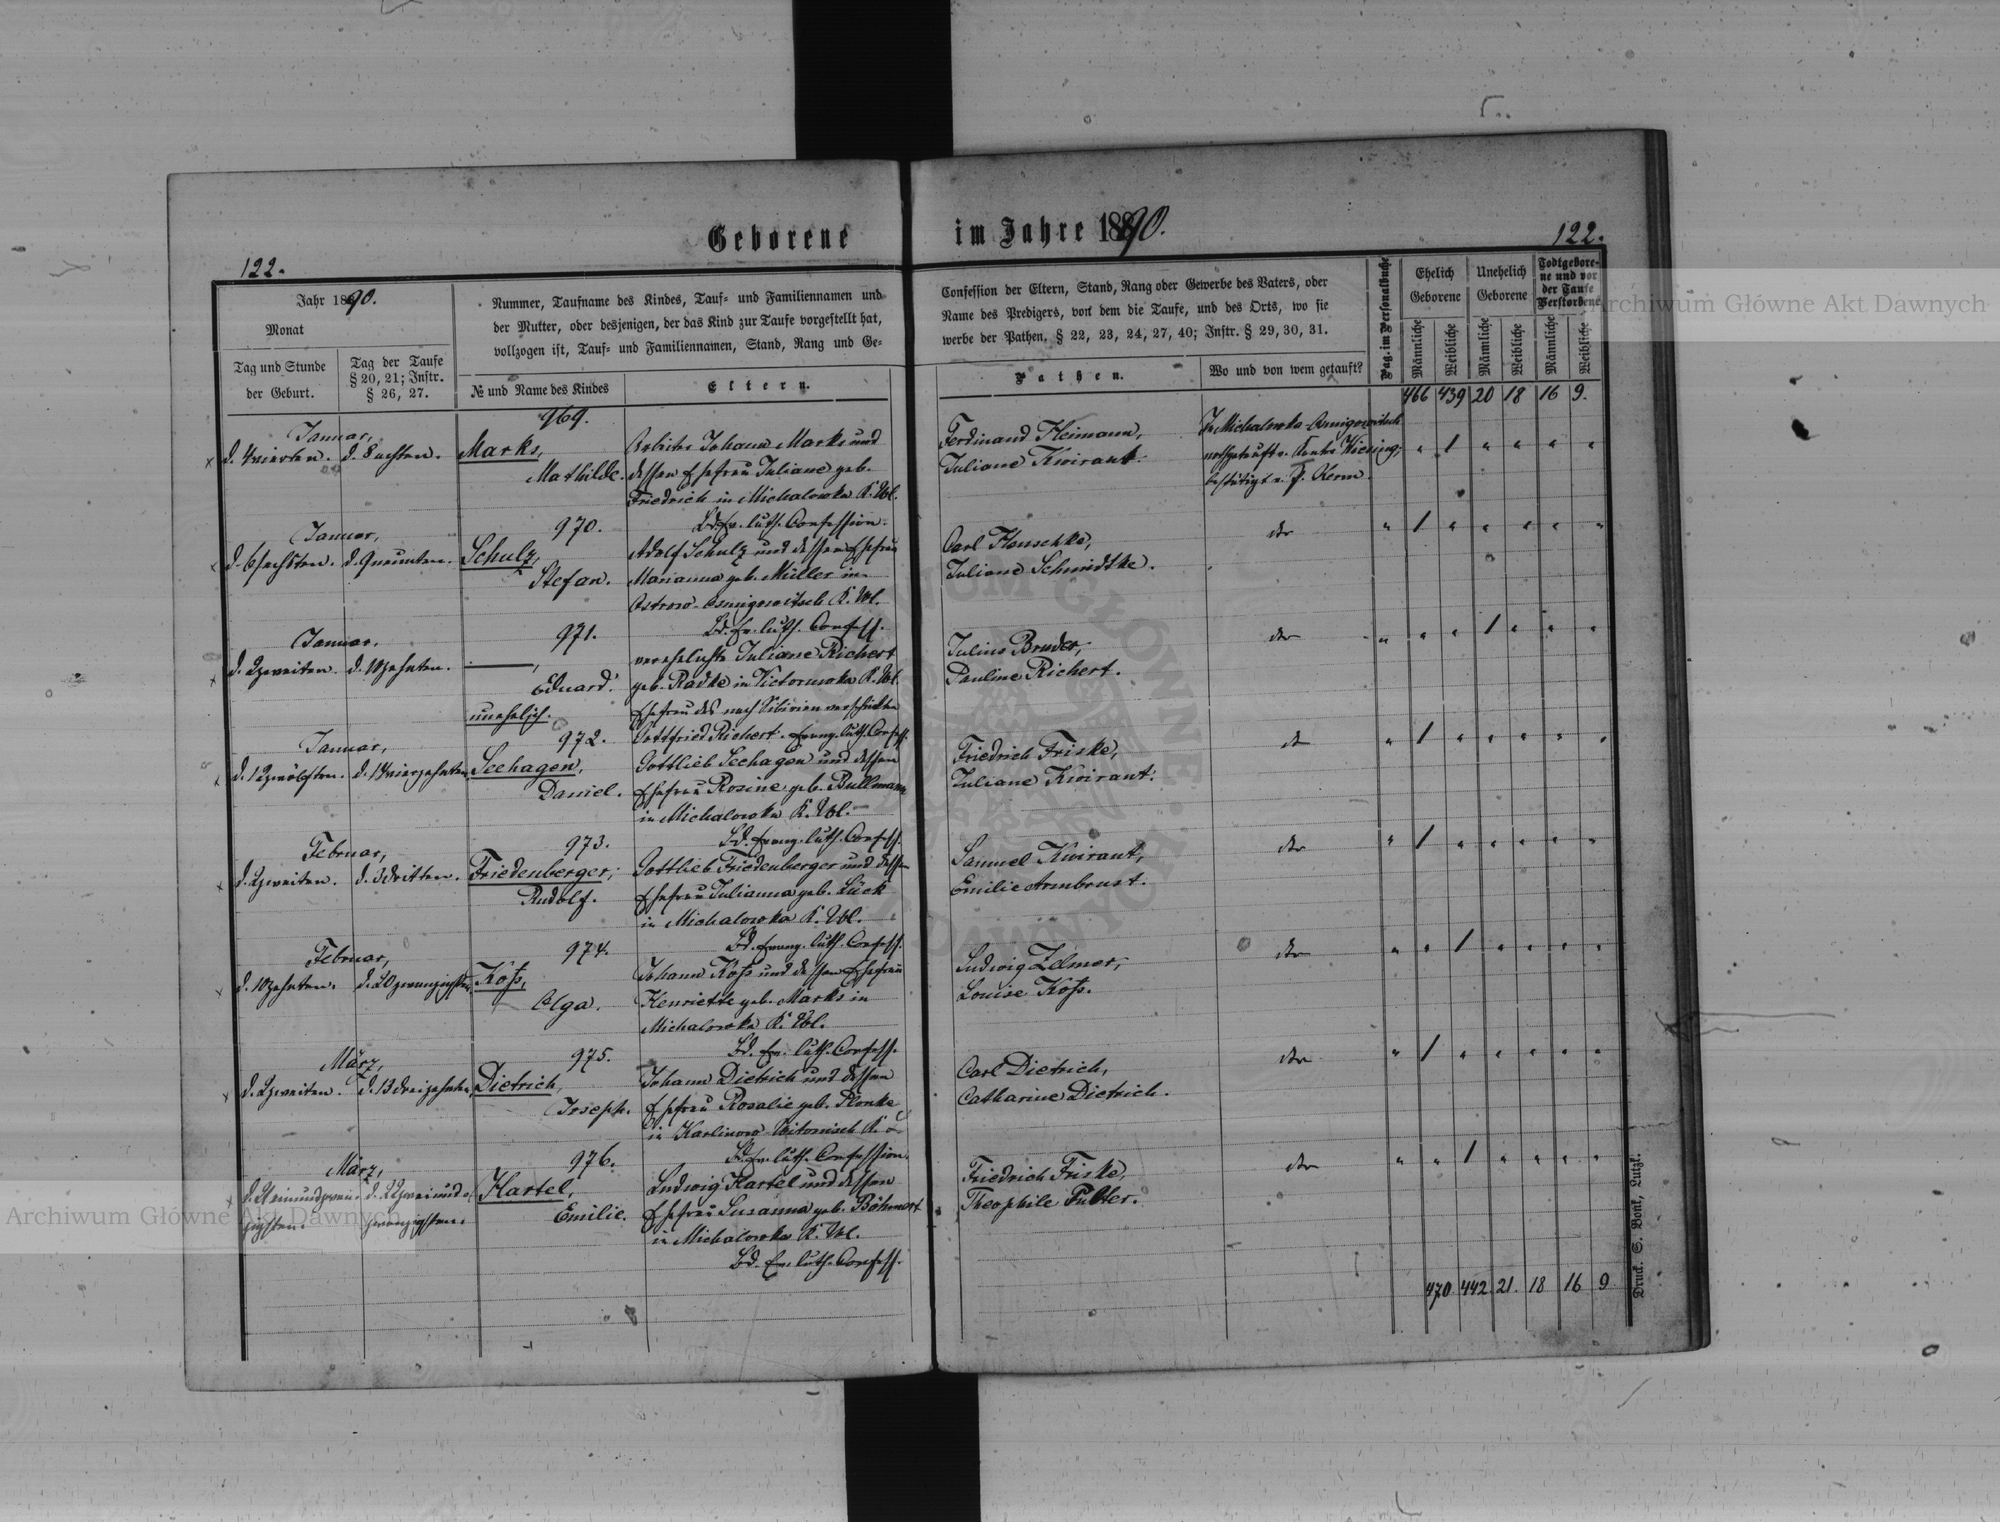 Geborene im Jahre 1890.
122.
122.
Jahr 1890.
Monat
Tag und Stunde
der Geburt.
Tag der Taufe
§ 20, 21; Instr.
§ 26, 27.
Nummer, Taufname des Kindes, Tauf- und Familiennamen und
der Mutter, oder desjenigen, der das Kind zur Taufe vorgestellt hat,
vollzogen ist, Tauf- und Familiennamen, Stand, Rang und Ge-
№ und Name des Kindes
Eltern.
Confession der Eltern, Stand, Rang oder Gewerbe des Vaters, oder
Name des Predigers, von dem die Taufe, und des Orts, wo sie
werbe der Pathen. § 22, 23, 24, 27, 40; Instr. § 29, 30, 31.
Pathen.
Wo und von wem getauft?
Pag. im Personalbuche
Ehelich
Geborene
Unehelich
Geborene
Todtgebore-
ne und vor
der Taufe
Verstorbene
Männliche
Weibliche
Männliche
Weibliche
Männliche
Weibliche
466 439 20 18 16 9.
969.
Januar,
d. 4 vierten. d. 8 achten.
Marks,
Mathilde.
Arbeiter Johann Marks und
dessen Ehefrau Juliane geb.
Friedrich in Michalowka K. Wl.
Bd. Ev. luth. Confession.
Ferdinand Heimann,
Juliane Kwirant.
In Michalowka
nothgetauft v. Kantor
bestätigt v. P. Kerm.
970.
Januar,
d. 6 sechsten. d. 9 neunten.
Schulz,
Stefan.
Adolf Schulz und dessen Ehefrau
Marianna geb. Müller in
Ostrow K. Wl.
Bd. Ev. luth. Confess.
Carl Hanschke,
Juliane Schmidtke.
971.
Januar,
d. 2 zweiten. d. 10 zehnten.
Eduard.
unehelich.
verehelichte Juliane Richert
geb. Radke in Victorowka K. Wl.
Ehefrau des nach Sibirien verschickten
Gottfried Richert. Evang. luth. Confess.
Julius Bruder,
Pauline Richert.
972.
Januar,
d. 12 zwölften. d. 14 vierzehnten.
Seehagen,
Daniel.
Gottlieb Seehagen und dessen
Ehefrau Rosine geb. Bullmann
in Michalowka K. Wl.
Bd. Evang. luth. Confess.
Friedrich Friske,
Juliane Kwirant.
973.
Februar,
d. 2 zweiten. d. 3 dritten.
Friedenberger,
Rudolf.
Gottlieb Friedenberger und dessen
Ehefrau Julianna geb. Lück
in Michalowka K. Wl.
Bd. Evang. luth. Confess.
Samuel Kwirant,
Emilie Armbrust.
974.
Februar,
d. 10 zehnten. d. 20 zwanzigsten.
Koß,
Olga.
Johann Koß und dessen Ehefrau
Henriette geb. Marks in
Michalowka K. Wl.
Bd. Ev. luth. Confess.
Ludwig Zelmer,
Louise Koß.
975.
März,
d. 2 zweiten. d. 13 dreizehnten.
Dietrich,
Joseph.
Johann Dietrich und dessen
Ehefrau Rosalie geb. Plonke
in Karlinow
Bd. Ev. luth. Confession.
Carl Dietrich,
Catharine Dietrich.
976.
März,
d. 22 zweiund-
zwanzigsten.
Hartel,
Emilie.
Ludwig Hartel und dessen
Ehefrau Susanna geb. Böhmert
in Michalowka K. Wl.
Bd. Ev. luth. Confess.
Friedrich Friske,
Theophile Pulter.
470 442 21. 18 16 9
Druck. S. Bonk, Lutzk.
Archiwum Główne Akt Dawnych
Archiwum Główne Akt Dawnych